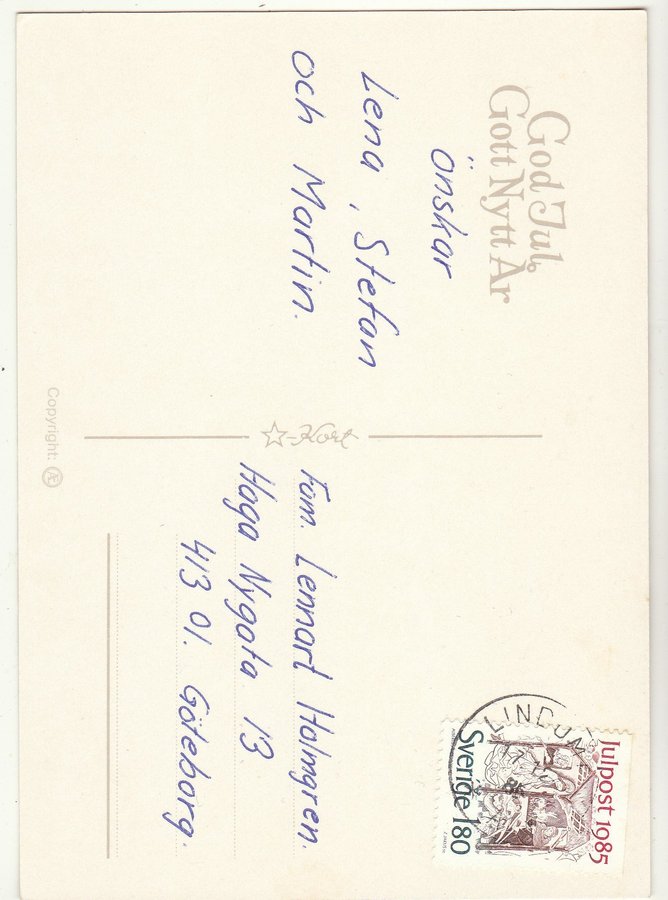 God Jul
Gott Nytt År
önskar
Lena, Stefan
och Martin.
Copyright: Æ
-Kort
Fam. Lennart Holmgren.
Haga Nygata 13.
413 01. Göteborg.
Julpost 1985
Sverige 180